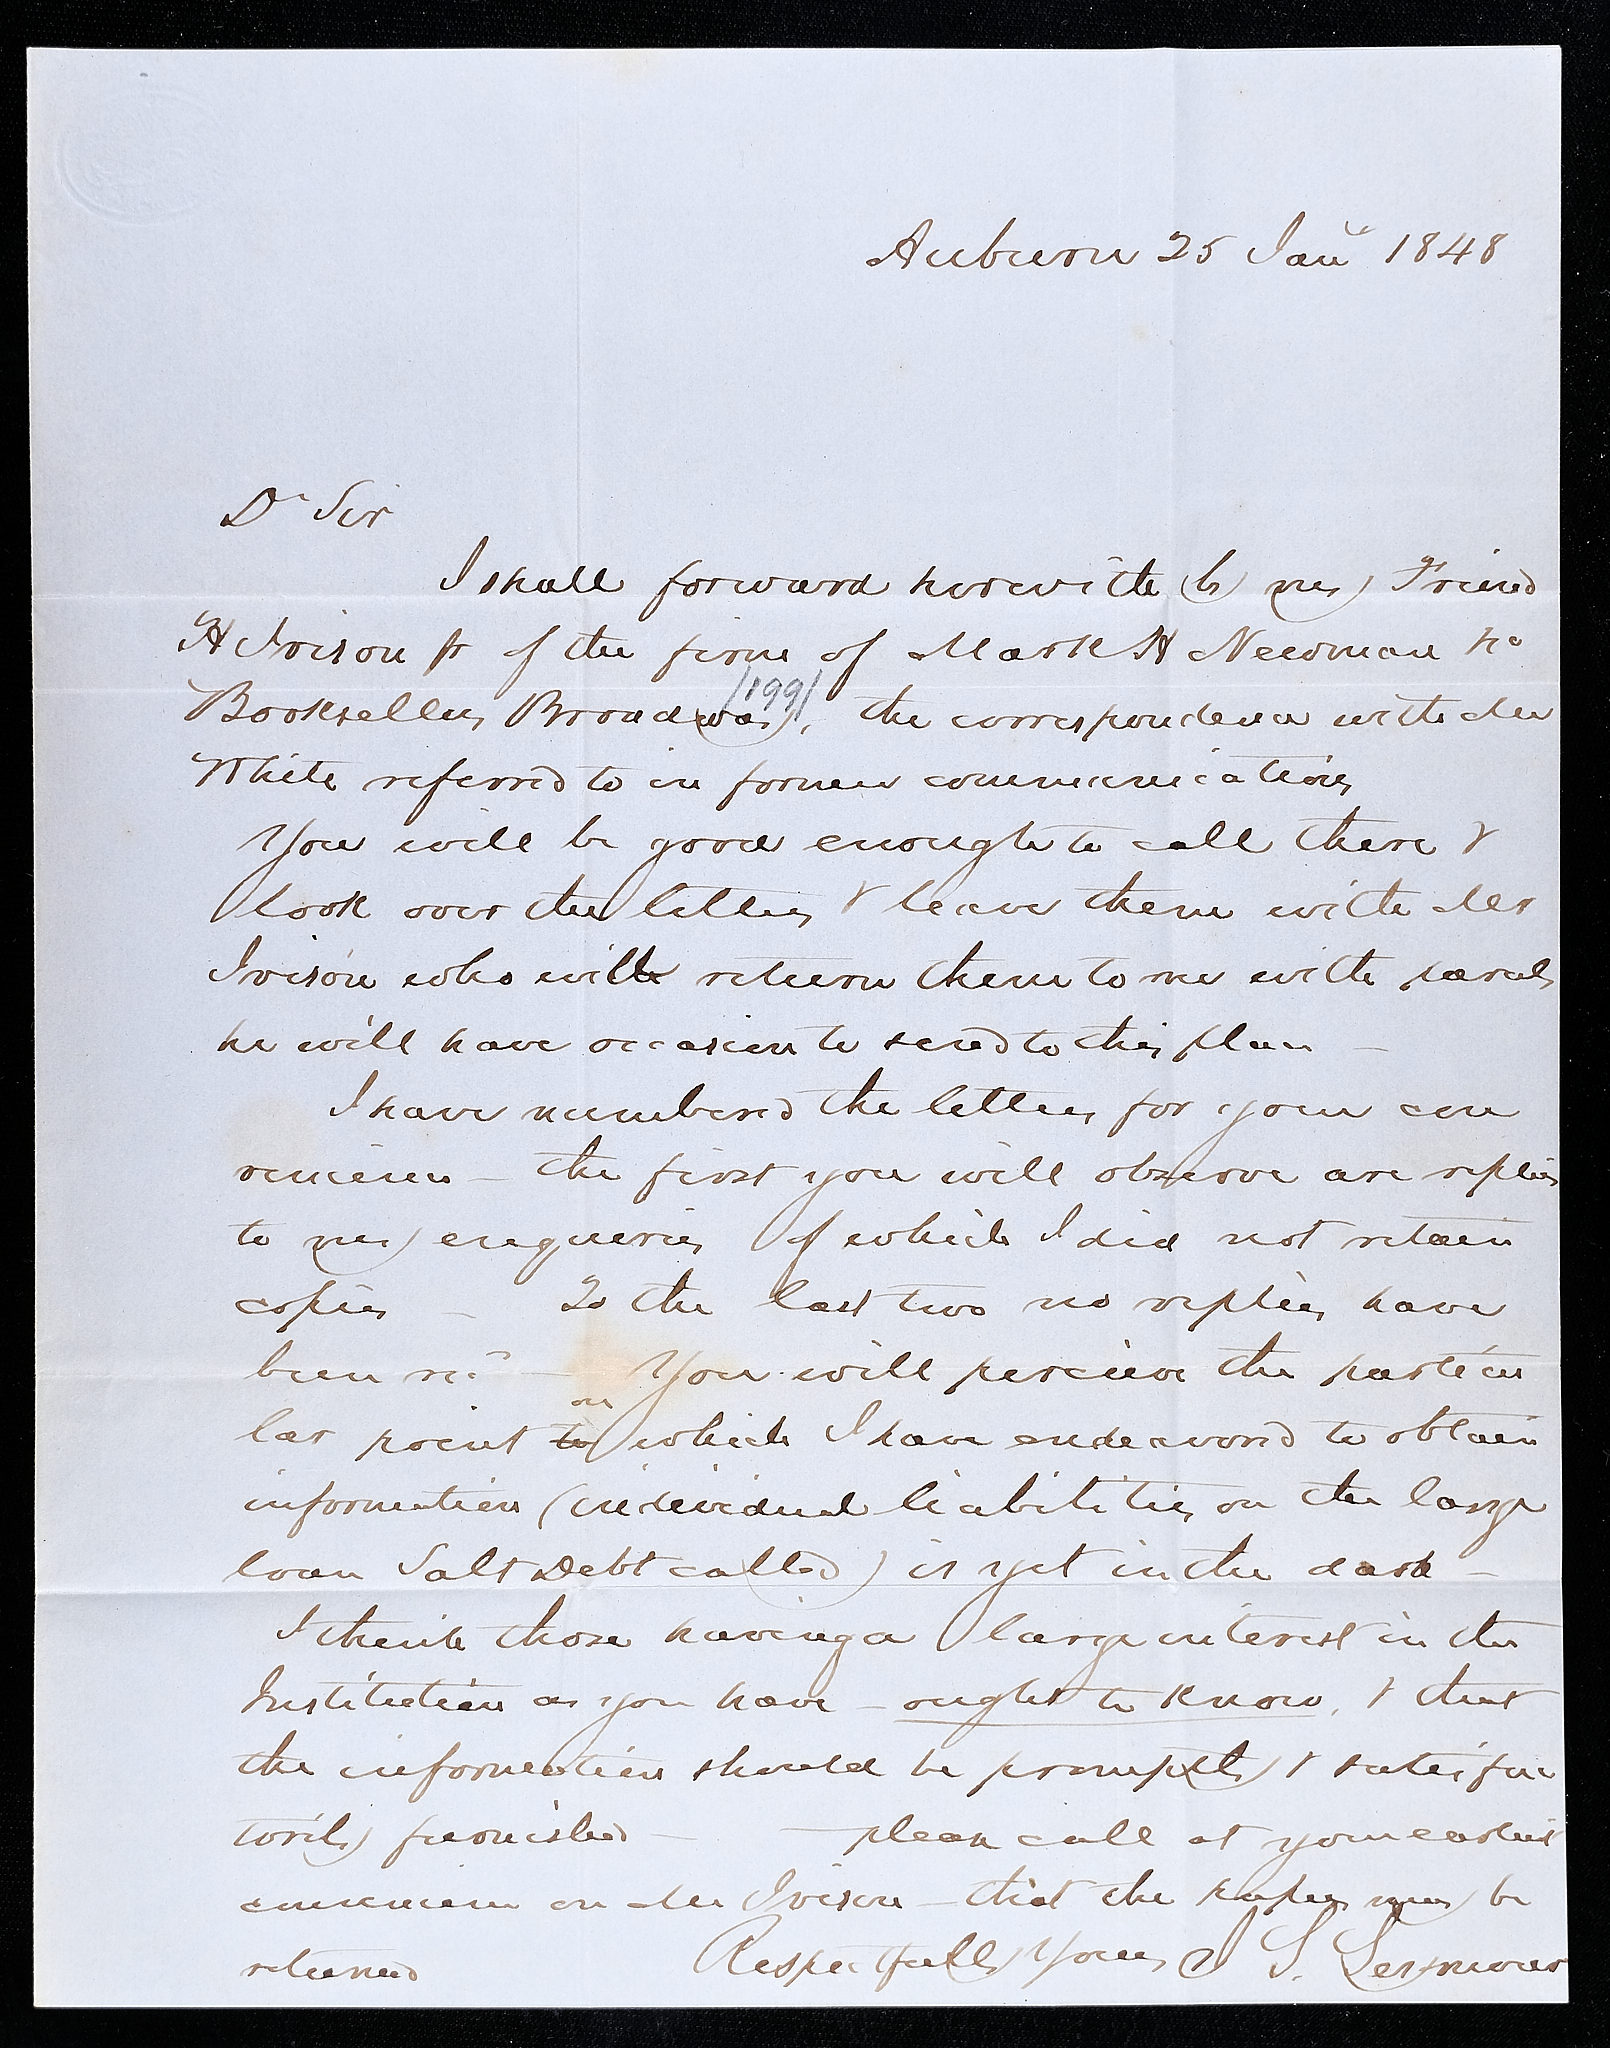 Auburn 25 Jany 1848
Dr Sir
I shall forward herewith by my Friend
H Ivison Jr of the firm of Mark H Newman &co
/199/
Booksellers Broadway, the correspondence with Mr
White referred to in former communications
You will be good enough to call there &
look over the letters & leave them with Mr
Ivison who will return them to me with parcels
he will have occasion to send to this place —
I have numbered the letters for your con
venience — the first you will observe are replies
to my enqueries of which I did not retain
copies — To the last two no replies have
been recd — You will percieve the particu
on
lar point to which I have endeavored to obtain
information (individual liabilities on the large
loan Salt Debt called) is yet in the dark —
I think those having a large interest in the
Institution as you have — ought to know, & that
the information should be promptly & satisfac
torily furnished — — please call at your earliest
convenience on Mr Ivison — that the papers may be
returned Respectfully Yours J S. Seymour